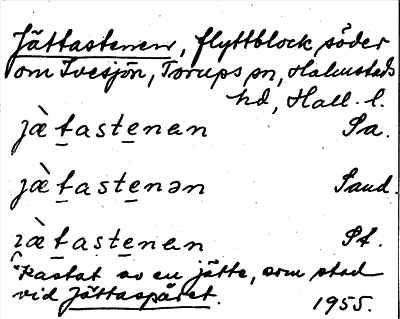 Jättastenen, flyttblock söder
om Ivesjön, Torups sn, Halmstads
hd, Hall. l.
jæ̀t̠aste̠nen Sa.
jæ̀t̠aste̠nən Sand.
ɪæ̀t̠aste̠nen St.
"Kastat av en jätte, som stod
vid Jättaspåret. 1955.